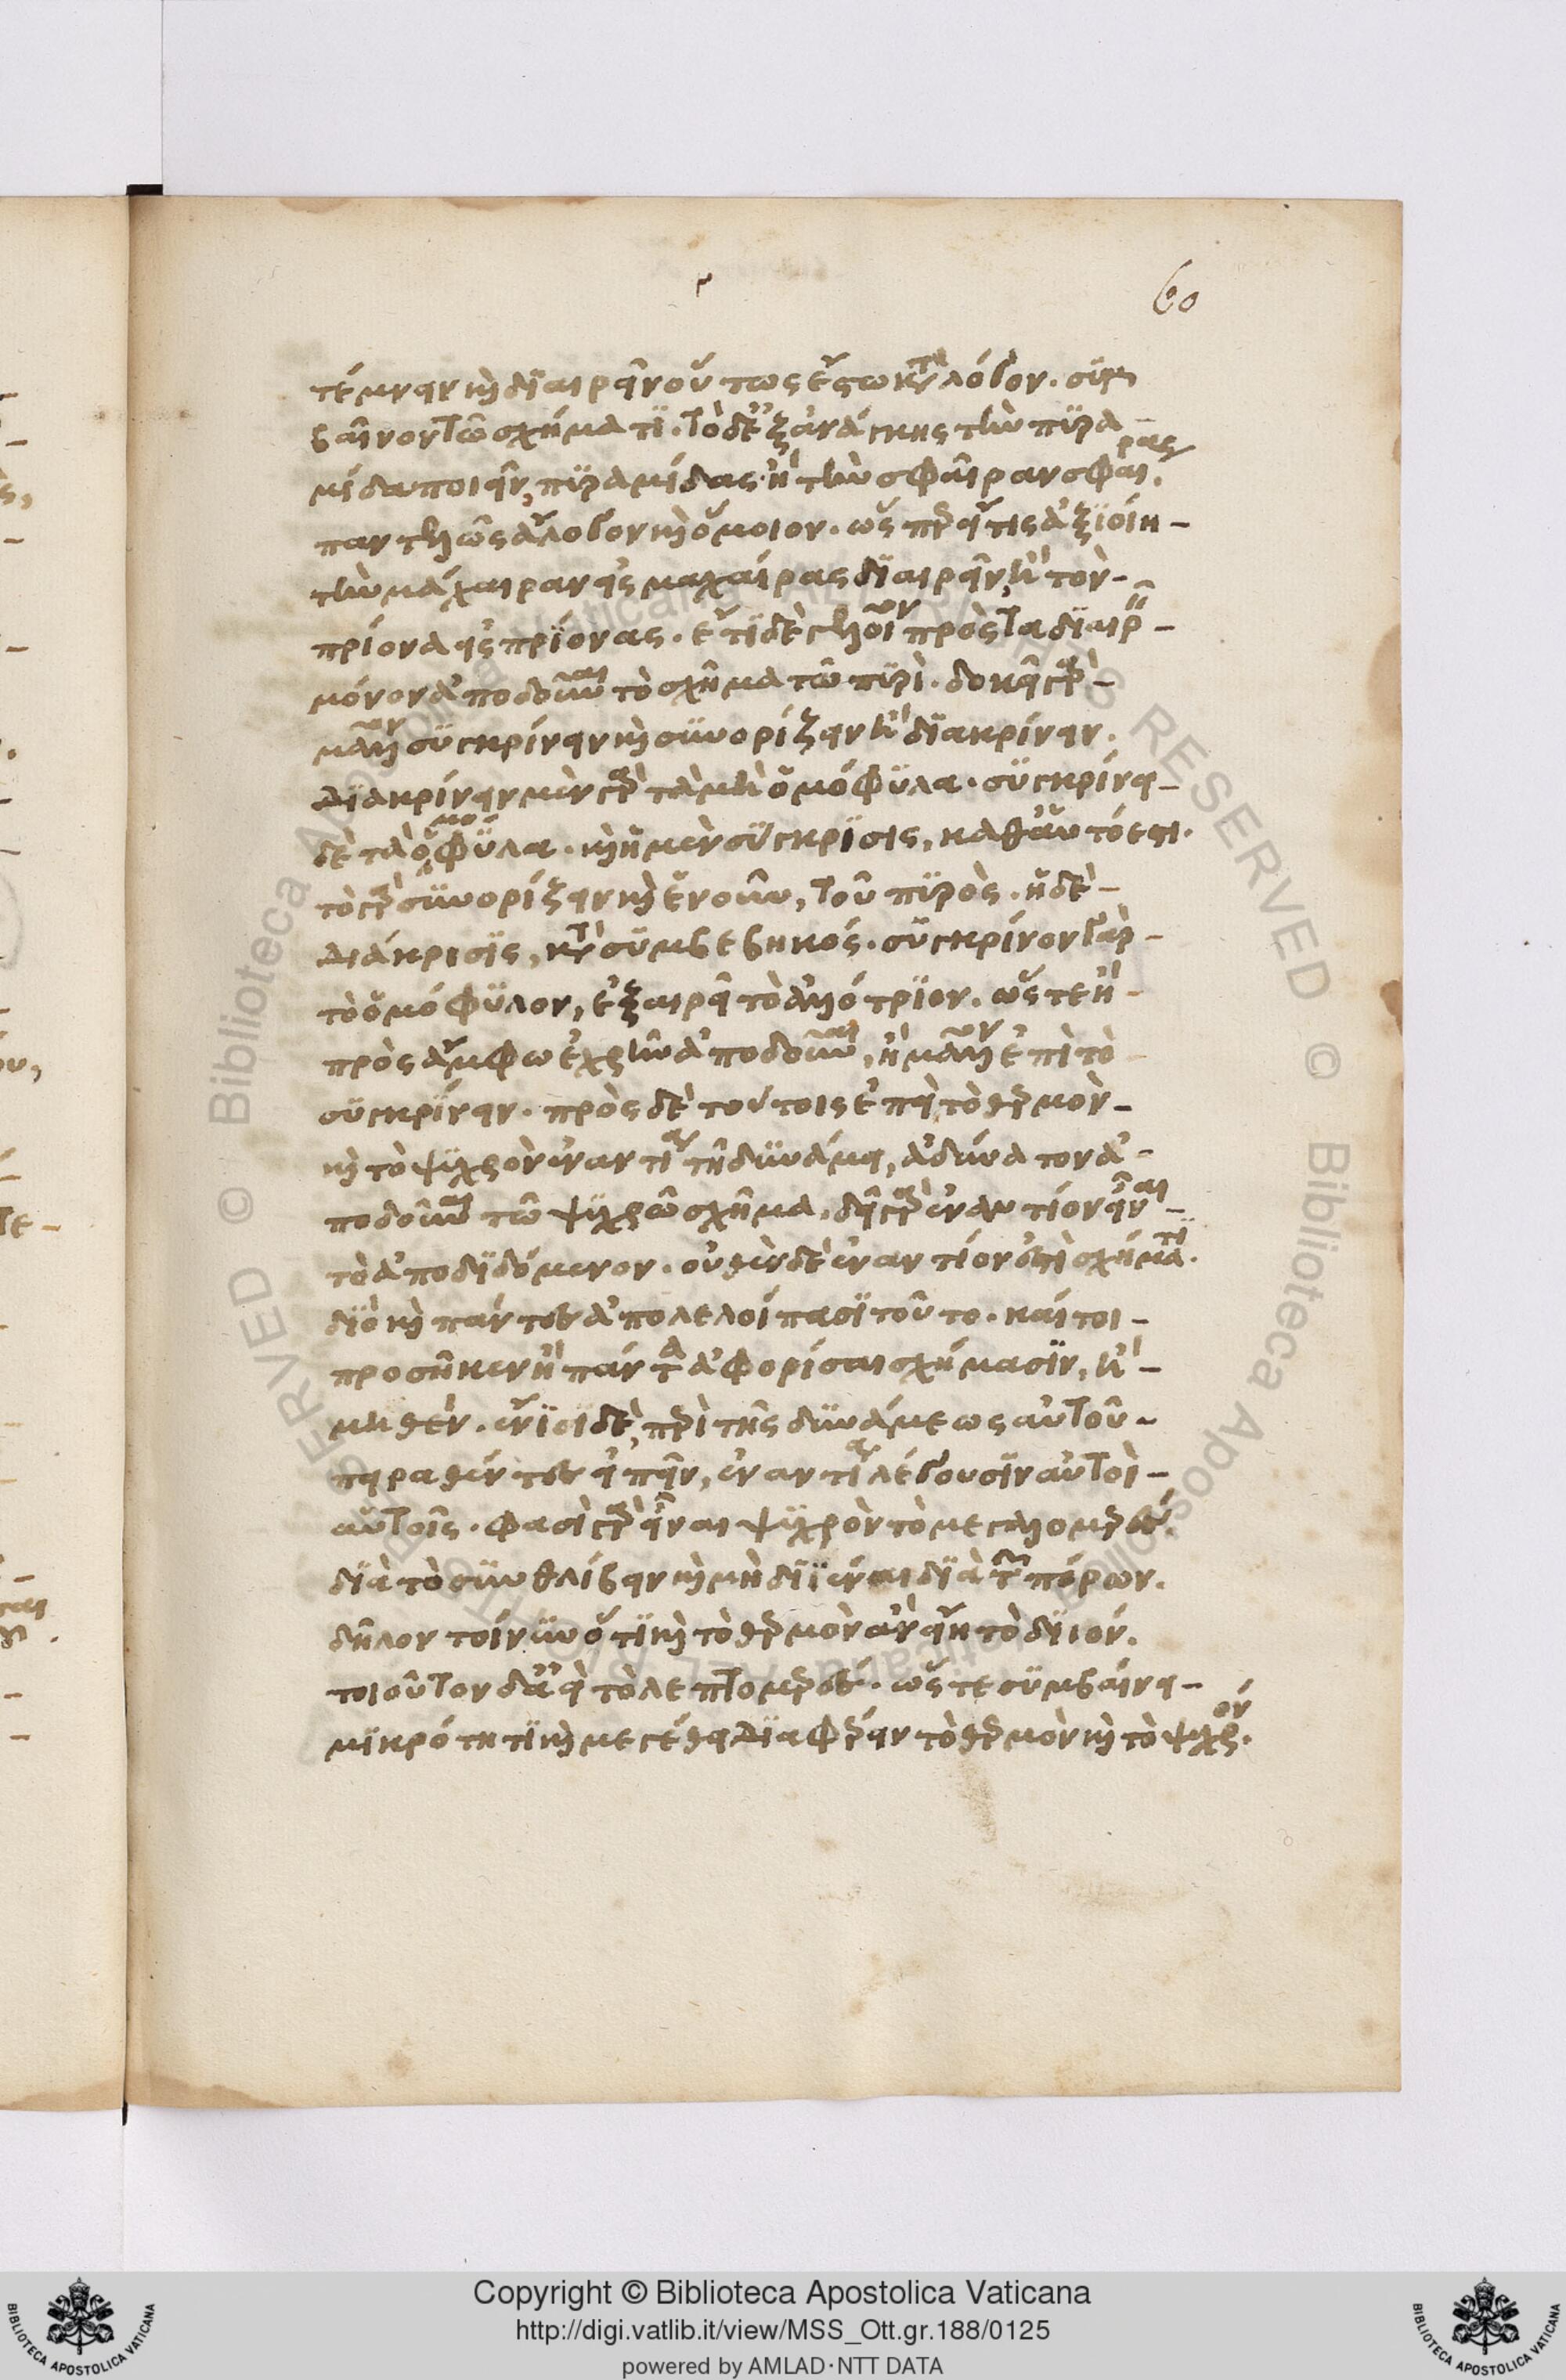 60
τέμνειν καὶ διαιρεῖν οὕτως ἔστω κατὰ λόγον. συμ
βαῖνον τῶ σχήματι. τὸ δ' ἐξ ἀνάγκης τὴν πυρα-
μίδα ποιεῖν, πυραμίδας· ἢ τὴν σφαῖραν σφαίρας.
παντελῶς ἄλογον καὶ ὅμοιον. ὥσπερ εἴ τις ἀξιοίη-
τὴν μάχαιραν εἰς μαχαίρας διαιρεῖν, ἢ τὸν-
πρίονα εἰς πρίονας. ἔτι δὲ γελοῖον πρὸς τὸ διαιρεῖν-
μόνον ἀποδοῦναι τὸ σχῆμα τῶ πυρί. δοκεῖ γὰρ-
μᾶλλον συγκρίνειν καὶ συνορίζειν ἢ διακρίνειν.
Διακρίνειν μὲν γὰρ τὰ μὴ ὁμόφυλα. συγκρίνει-
δὲ τὰ ὁμόφυλα. καὶ ἡ μὲν σύγκρισις, καθ' αὑτό ἐστι.
τὸ γὰρ συνορίζειν καὶ ἑνοῦν, τοῦ πυρὸς. ἡ δὲ-
διάκρισις, κατὰ συμβεβηκός. συγκρίνον γὰρ-
τὸ ὁμόφυλον, ἐξαιρεῖ τὸ ἀλλότριον. ὥστε ἢ-
πρὸς ἄμφω ἐχρῆν ἀποδοῦναι, ἢ μᾶλλον ἐπὶ τὸ
συγκρίνειν. πρὸς δὲ τούτοις ἐπεὶ τὸ θερμὸν-
καὶ τὸ ψυχρὸν ἐναντία τῆ δυνάμει, ἀδύνατον ἀ-
ποδοῦναι τῶ ψυχρῶ σχῆμα. δεῖ γὰρ ἐναντίον εἶναι-
τὸ ἀποδιδόμενον. οὐθὲν δὲ ἐναντίον ἐστὶ σχήματι.
διὸ καὶ πάντες ἀπολελοίπασι τοῦτο. καίτοι-
προσῆκεν ἢ πάντα ἀφορίσαι σχήμασιν, ἢ-
μηθέν. ἔνιοι δὲ, περὶ τῆς δυνάμεως αὐτοῦ-
πειραθέντες εἰπεῖν, ἐναντία λέγουσιν αὐτοὶ-
αὑτοῖς. φασὶ γὰρ εἶναι ψυχρὸν τὸ μεγαλομερές.
διὰ τὸ συνθλίβειν καὶ μὴ διϊέναι διὰ τῶν πόρων.
δῆλον τοίνυν ὅτι καὶ τὸ θερμὸν ἂν εἴη τὸ διϊόν.
τοιοῦτον δ' ἀεὶ τὸ λεπτομερές. ὥστε συμβαίνει-
μικρότητι καὶ μεγέθει διαφέρειν τὸ θερμὸν καὶ τὸ ψυχρόν.
© Biblioteca Apostolica Vaticana ALL RIGHTS RESERVED
Copyright © Biblioteca Apostolica Vaticana
http://digi.vatlib.it/view/MSS_Ott.gr.188/0125
powered by AMLAD·NTT DATA
BIBLIOTECA APOSTOLICA VATICANA
BIBLIOTECA APOSTOLICA VATICANA